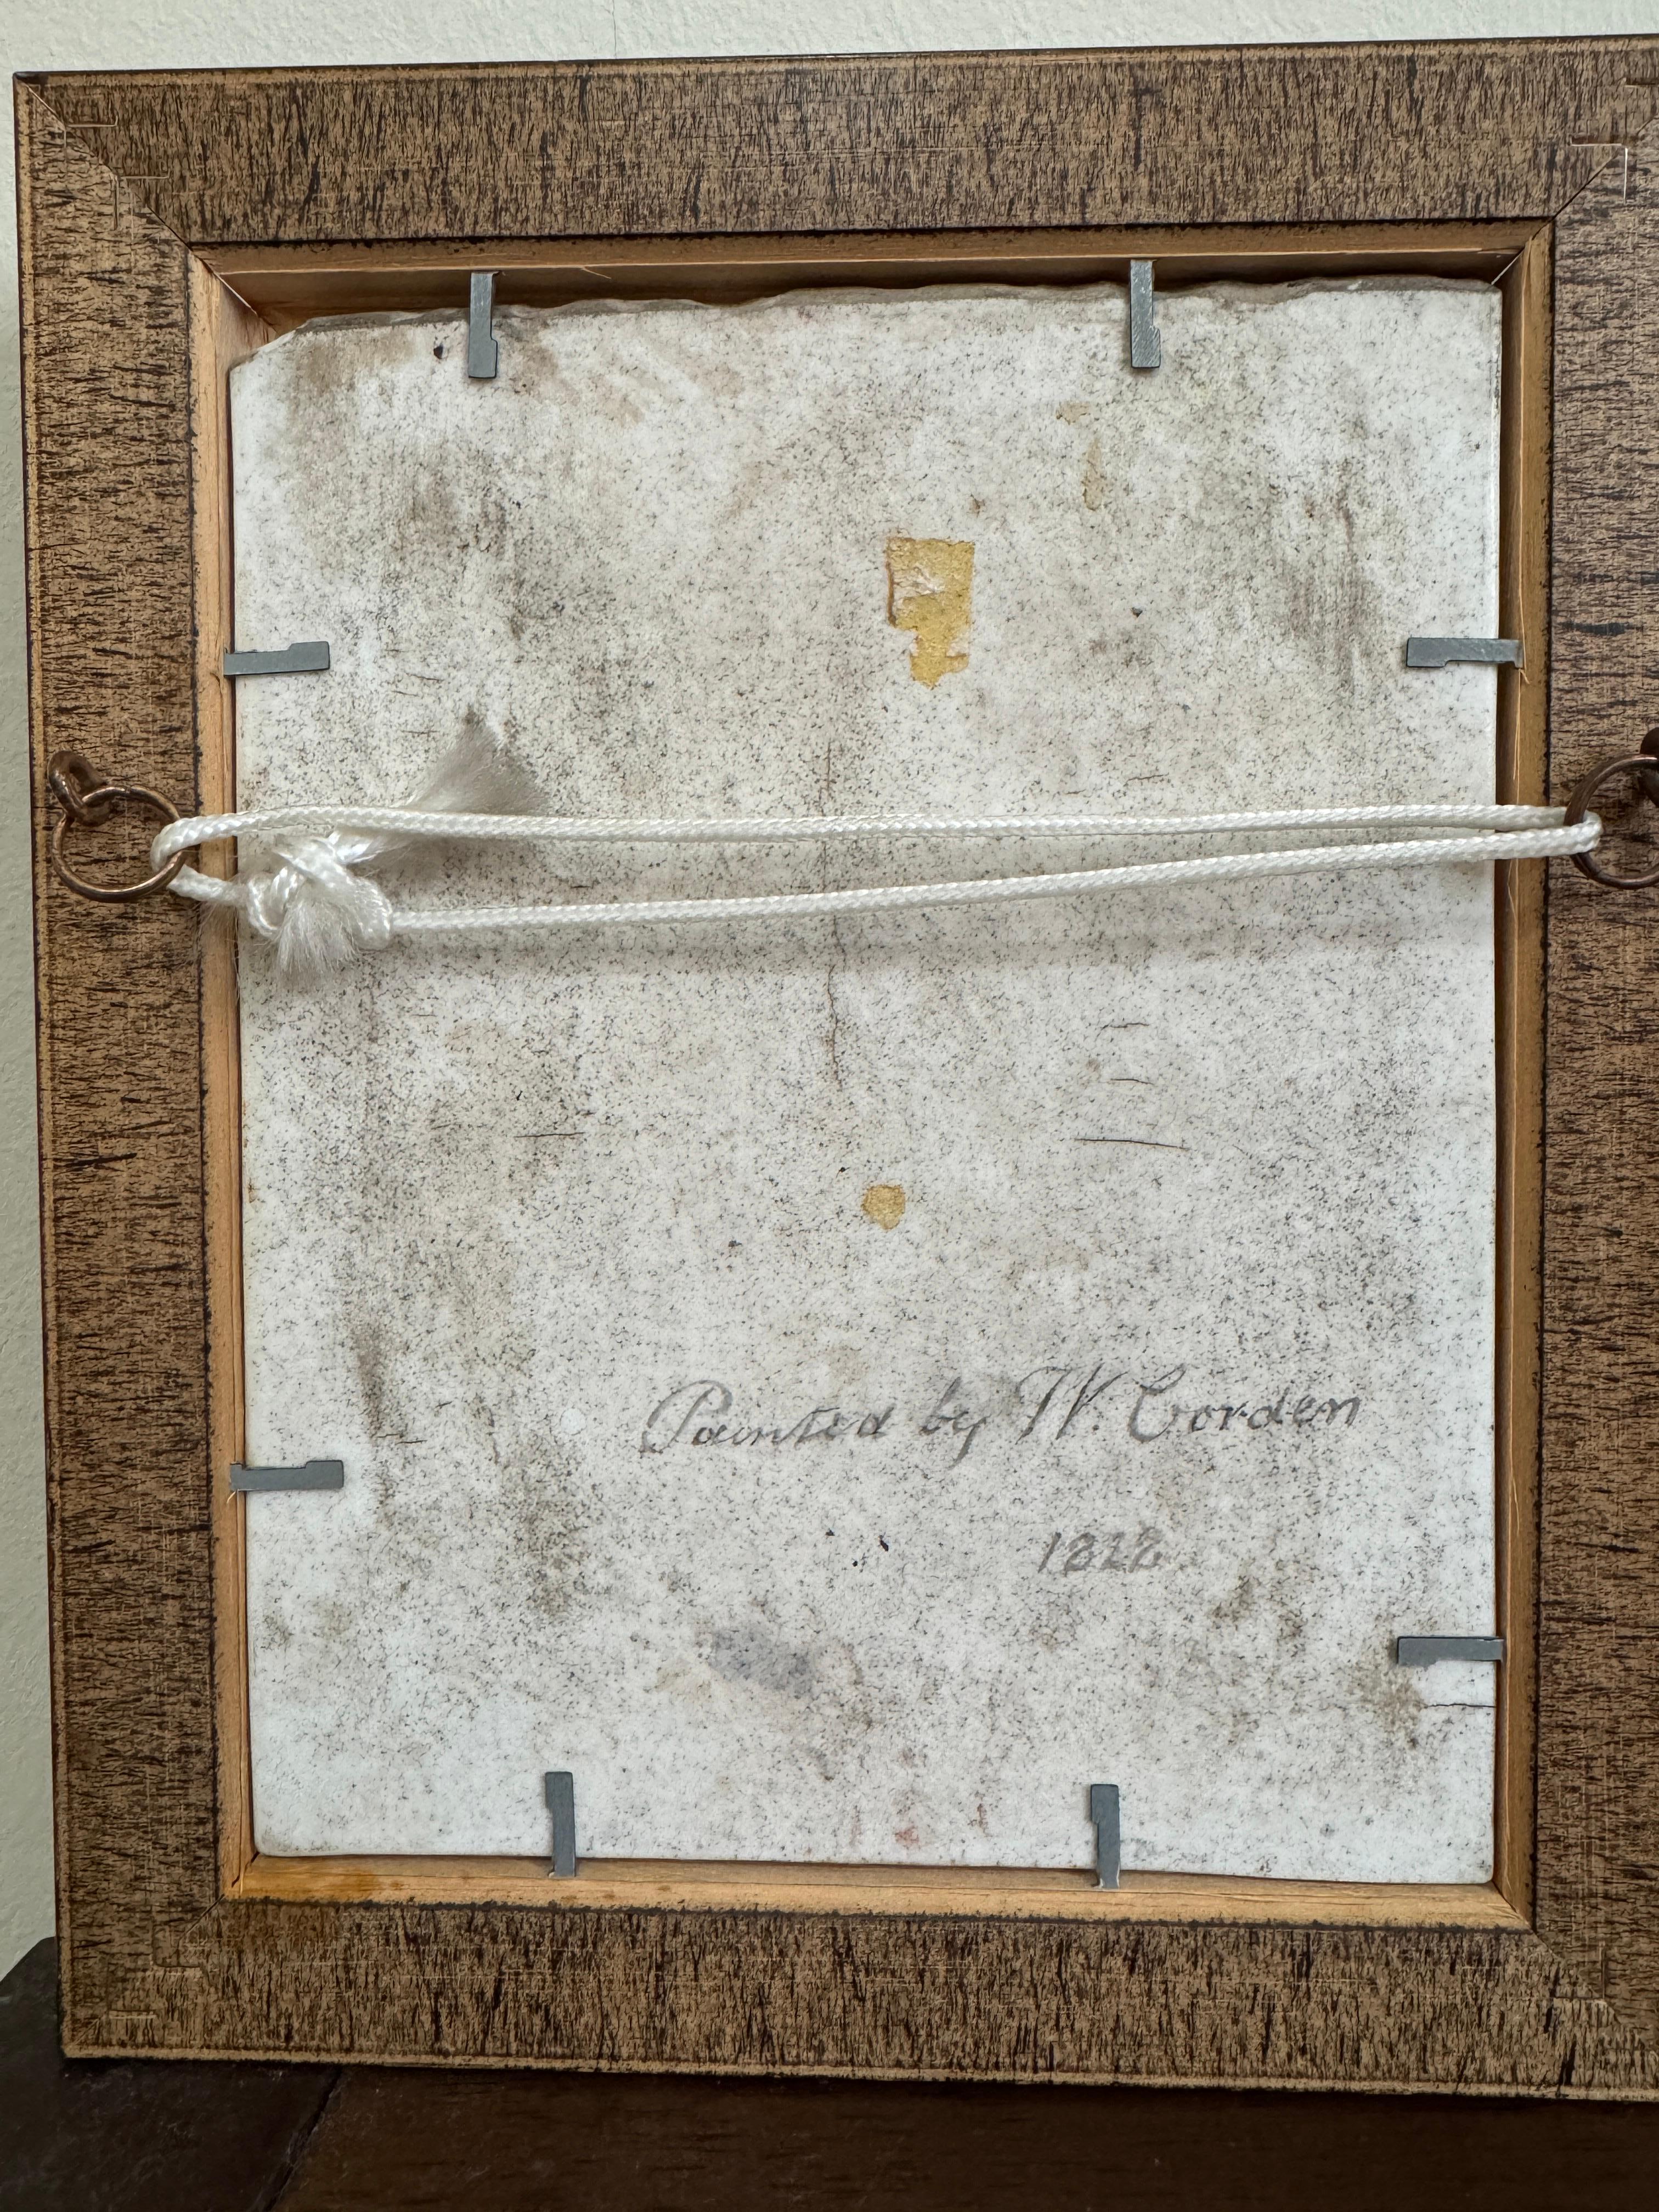 Painted by W. Corden
1822